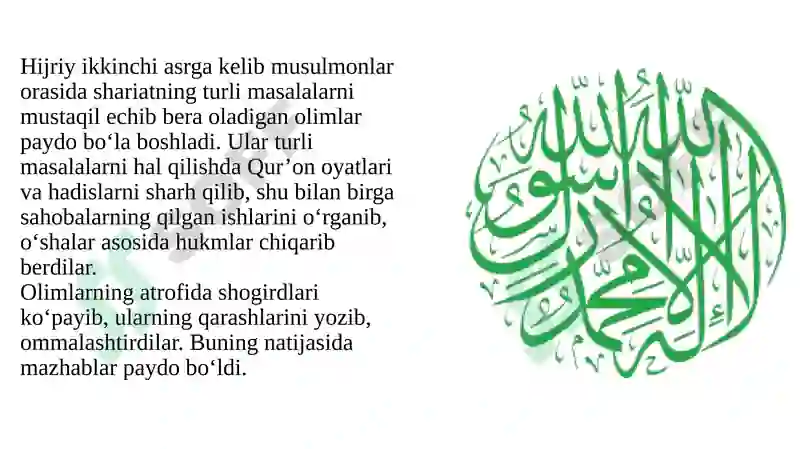 Hijriy ikkinchi asrga kelib musulmonlar
orasida shariatning turli masalalarni
mustaqil echib bera oladigan olimlar
paydo bo‘la boshladi. Ular turli
masalalarni hal qilishda Qur’on oyatlari
va hadislarni sharh qilib, shu bilan birga
sahobalarning qilgan ishlarini o‘rganib,
o‘shalar asosida hukmlar chiqarib
berdilar.
Olimlarning atrofida shogirdlari
ko‘payib, ularning qarashlarini yozib,
ommalashtirdilar. Buning natijasida
mazhablar paydo bo‘ldi.
لا إله إلا الله محمد رسول الله